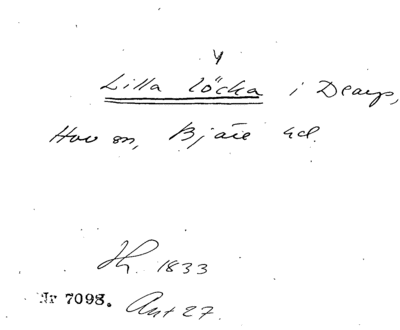 Lilla Löcka i Dearp,
Hov sn, Bjäre hd.
Jh. 1833
Nr 7098. Ant 27.